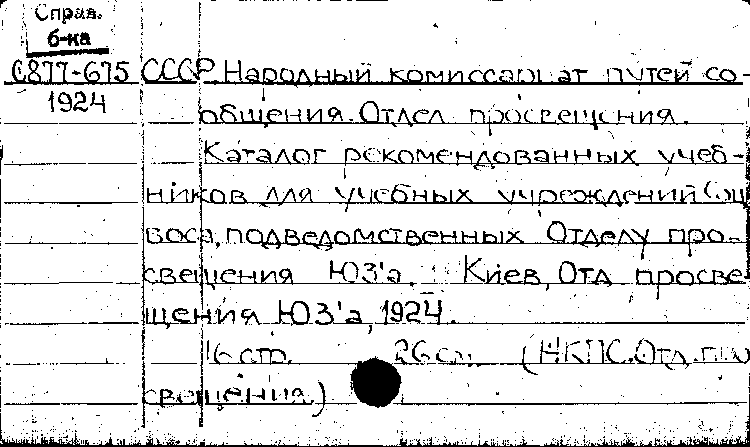 Справ.
б-ка
С877-675 СССР. Народный комиссариат путей со-
1924 общения. Отдел просвещения.
Каталог рекомендованных учеб-
ников для учебных учреждений Соц
воса, подведомственных Отделу про-
свещения ЮЗ'а. Киев, Отд просве
щения ЮЗ'а, 1924.
16 стр. 26 см. (НКПС. Отд. про
свещения.)